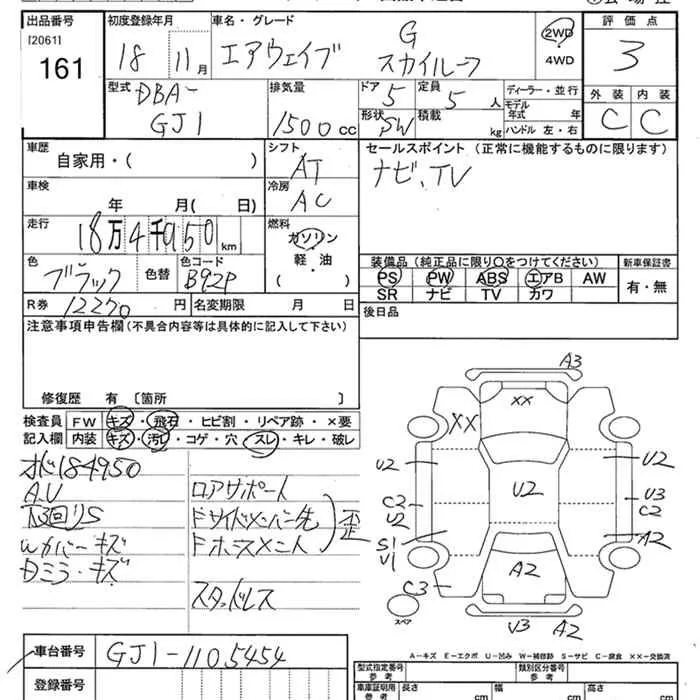 出品番号 初度登録年月 車名・グレード 評価点
[2061]
161 18 11月 エアウェイブ G スカイルーフ 2WD 4WD 3
型式 排気量 ドア 定員 ディーラー・並行 外装 内装
DBA-GJ1 1500cc 5 5人 モデル年式 年 C C
形状 SW 積載 kg ハンドル 左・右
車歴 シフト セールスポイント(正常に機能するものに限ります)
自家用・( ) AT ナビ、TV
車検 冷房
年 月(日) AC
走行 燃料
18万4千950km ガソリン
軽油
( )
色 色替 色コード 装備品(純正品に限り○をつけてください) 新車保証書
ブラック B92P PS PW ABS エアB AW 有・無
SR ナビ TV カワ
R券 12270円 名変期限 月 日 後日品
注意事項申告欄(不具合内容等は具体的に記入して下さい)
修復歴 有 〔箇所 〕
検査員 FW キズ・飛石・ヒビ割・リペア跡・×要
記入欄 内装 キズ・汚レ・コゲ・穴・スレ・キレ・破レ
184950
A.U ロアサポート
Fサイドメンバー先
Wカバーキズ Fホースメンバー 歪
Dミラーキズ
スタッドレス
A3
XX XX
U2 U2 U2
C2 U2 U3 C2
S1 V1 A2
C3 A2
スペア
V3 A2
A-キズ E-エクボ U-凹み W-補修跡 S-サビ C-腐食 XX-交換済
車台番号 GJ1-1105454
登録番号
型式指定番号 参考 類別区分番号 参考
車庫証明用 参考 長さ cm 幅 cm 高さ cm